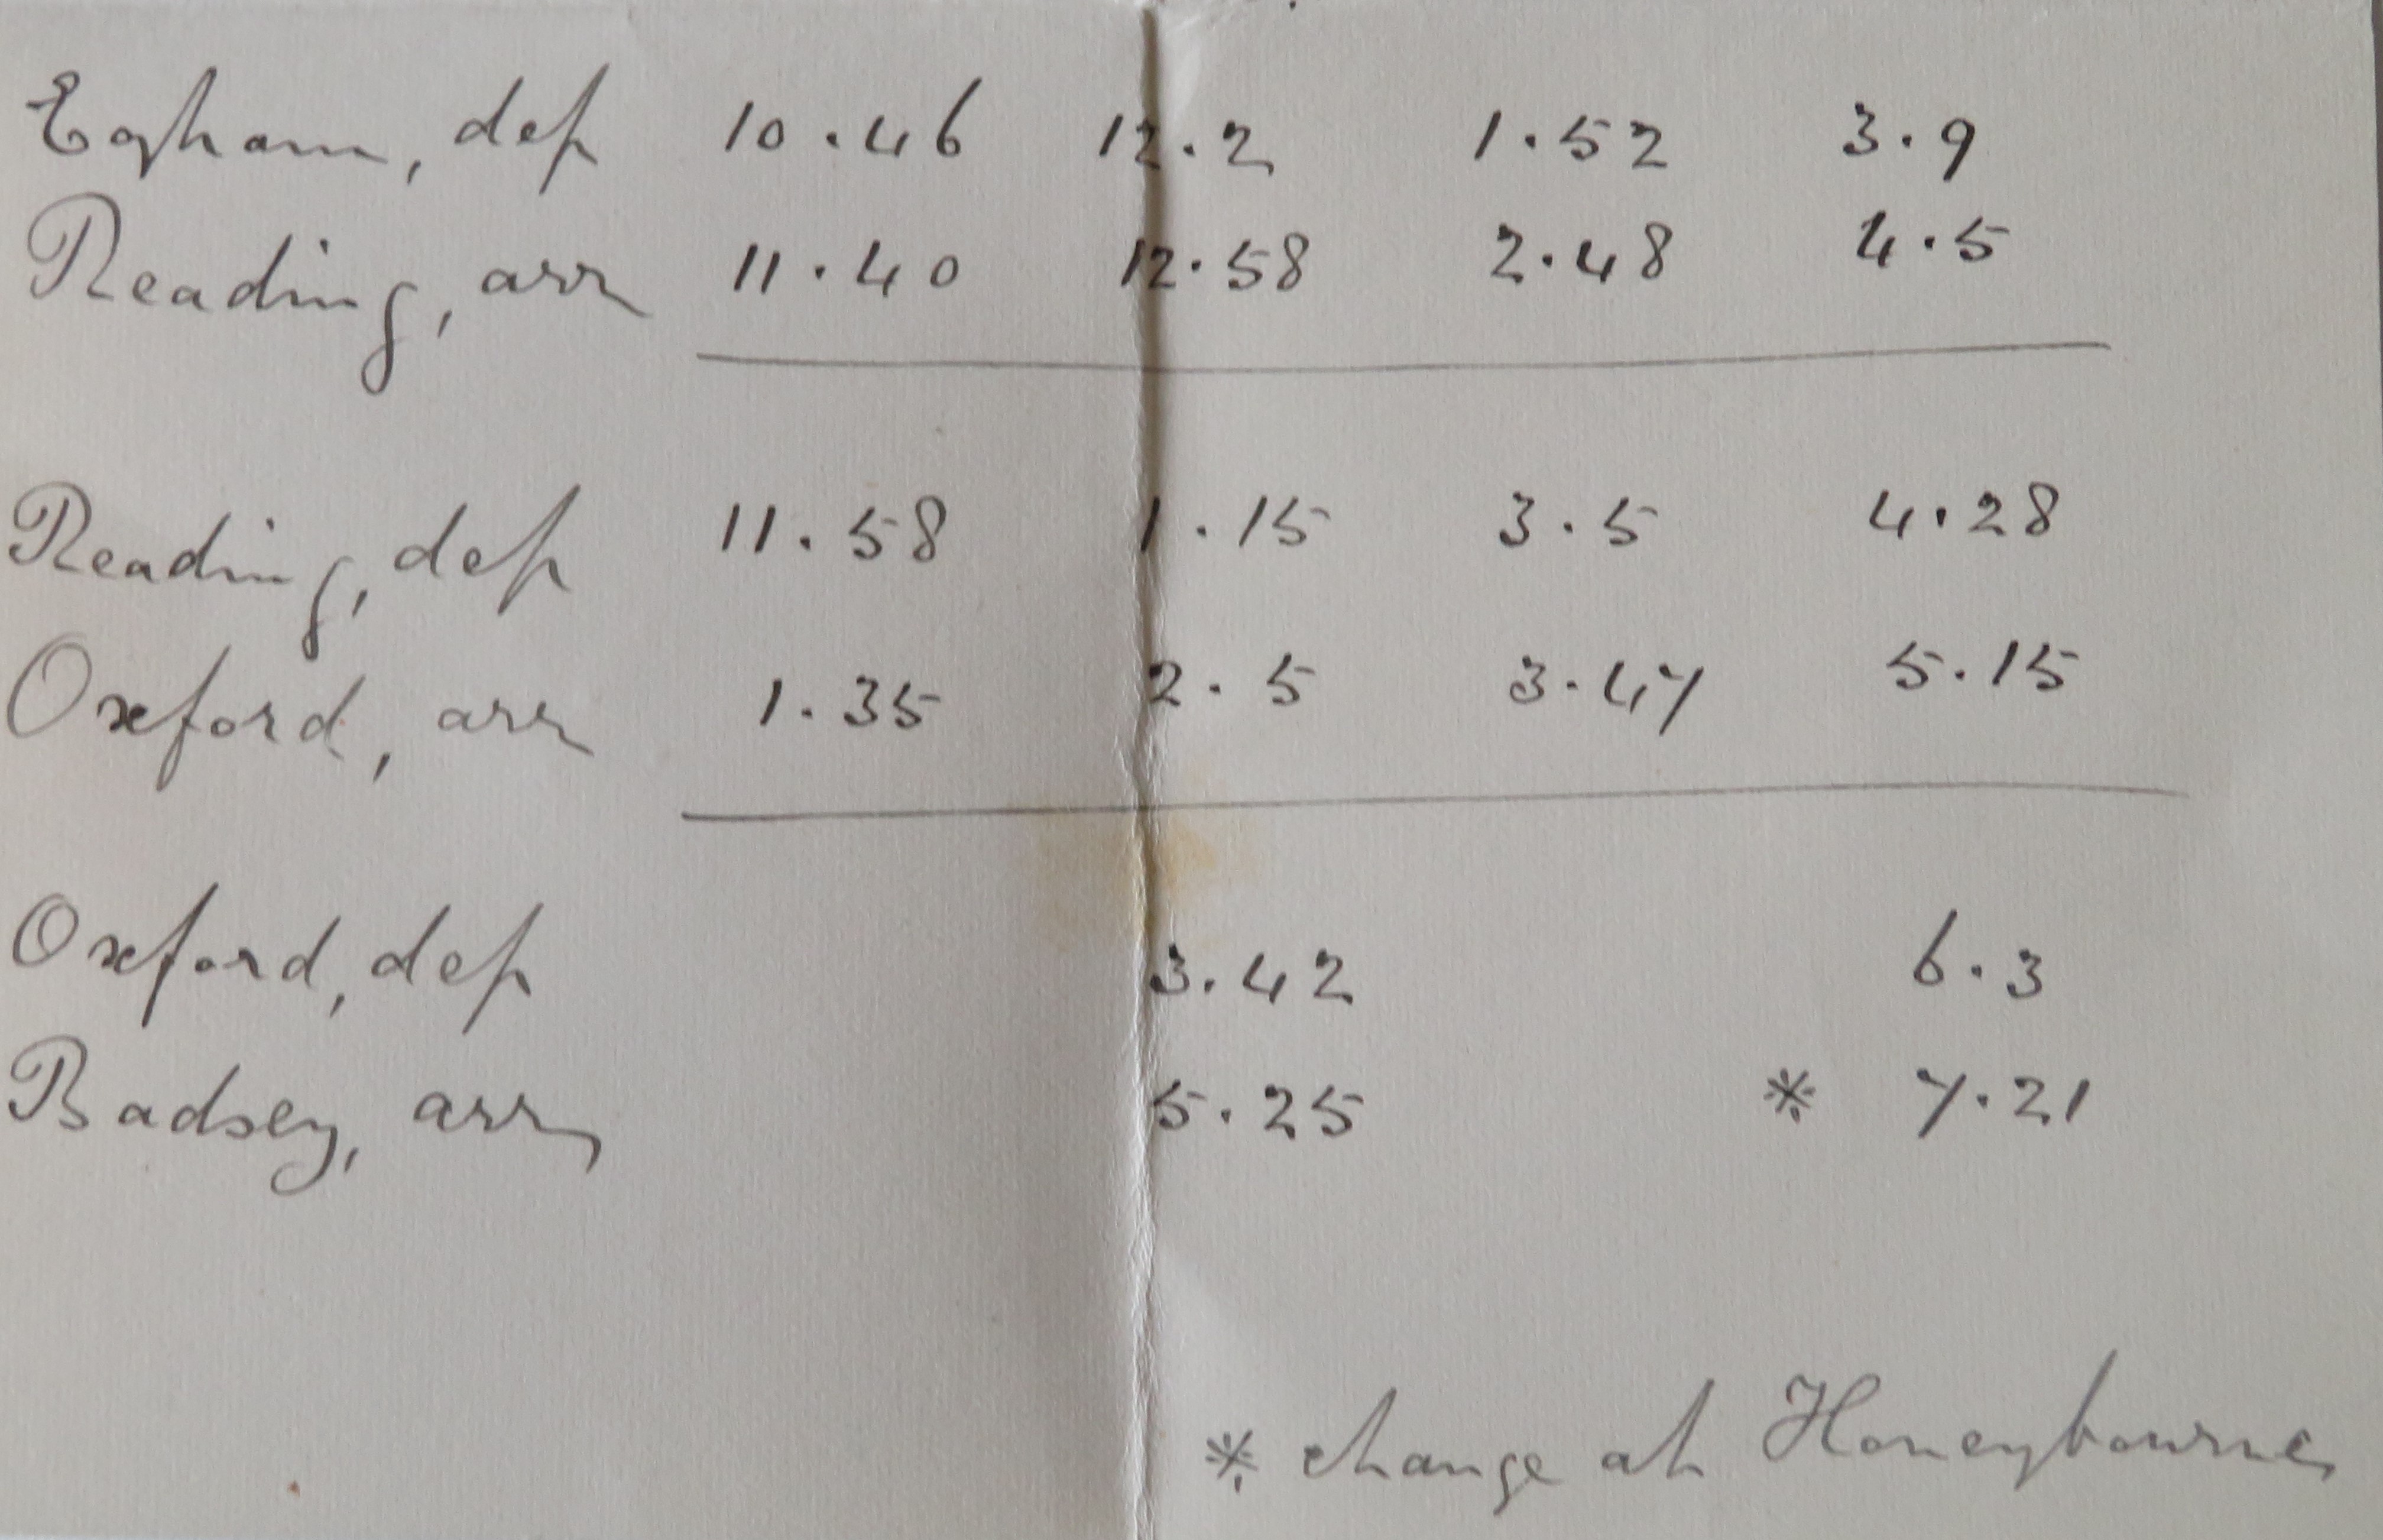 Egham, dep 10.46 12.2 1.52 3.9
Reading, arr 11.40 12.58 2.48 4.5
Reading, dep 11.58 1.15 3.5 4.28
Oxford, arr 1.35 2.5 3.47 5.15
Oxford, dep 3.42 6.3
Badsey, arr 5.25 * 7.21
* change at Honeybourne